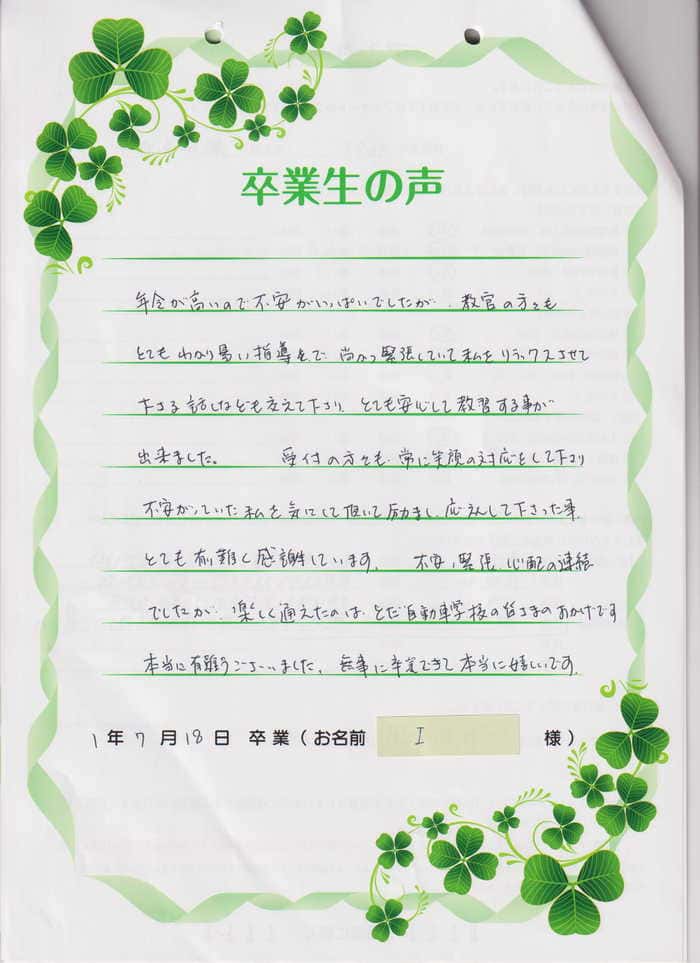 卒業生の声
年令が高いので不安がいっぱいでしたが、教官の方々も
とてもわかり易い指導をで 尚かつ緊張していて私をリラックスさせて
下さる話しなども交えて下さり、とても安心して教習する事が
出来ました。 受付の方々も、常に笑顔の対応をして下さり
不安がっていた私を気にして頂いて励まし、応えんして下さった事
とても有難く感謝しています。 不安、緊張、心配の連続
でしたが、楽しく通えたのは、とだ自動車学校の皆さまのおかげです
本当に有難うございました。無事に卒業できて本当に嬉しいです。
1年7月18日 卒業(お名前 I 様)